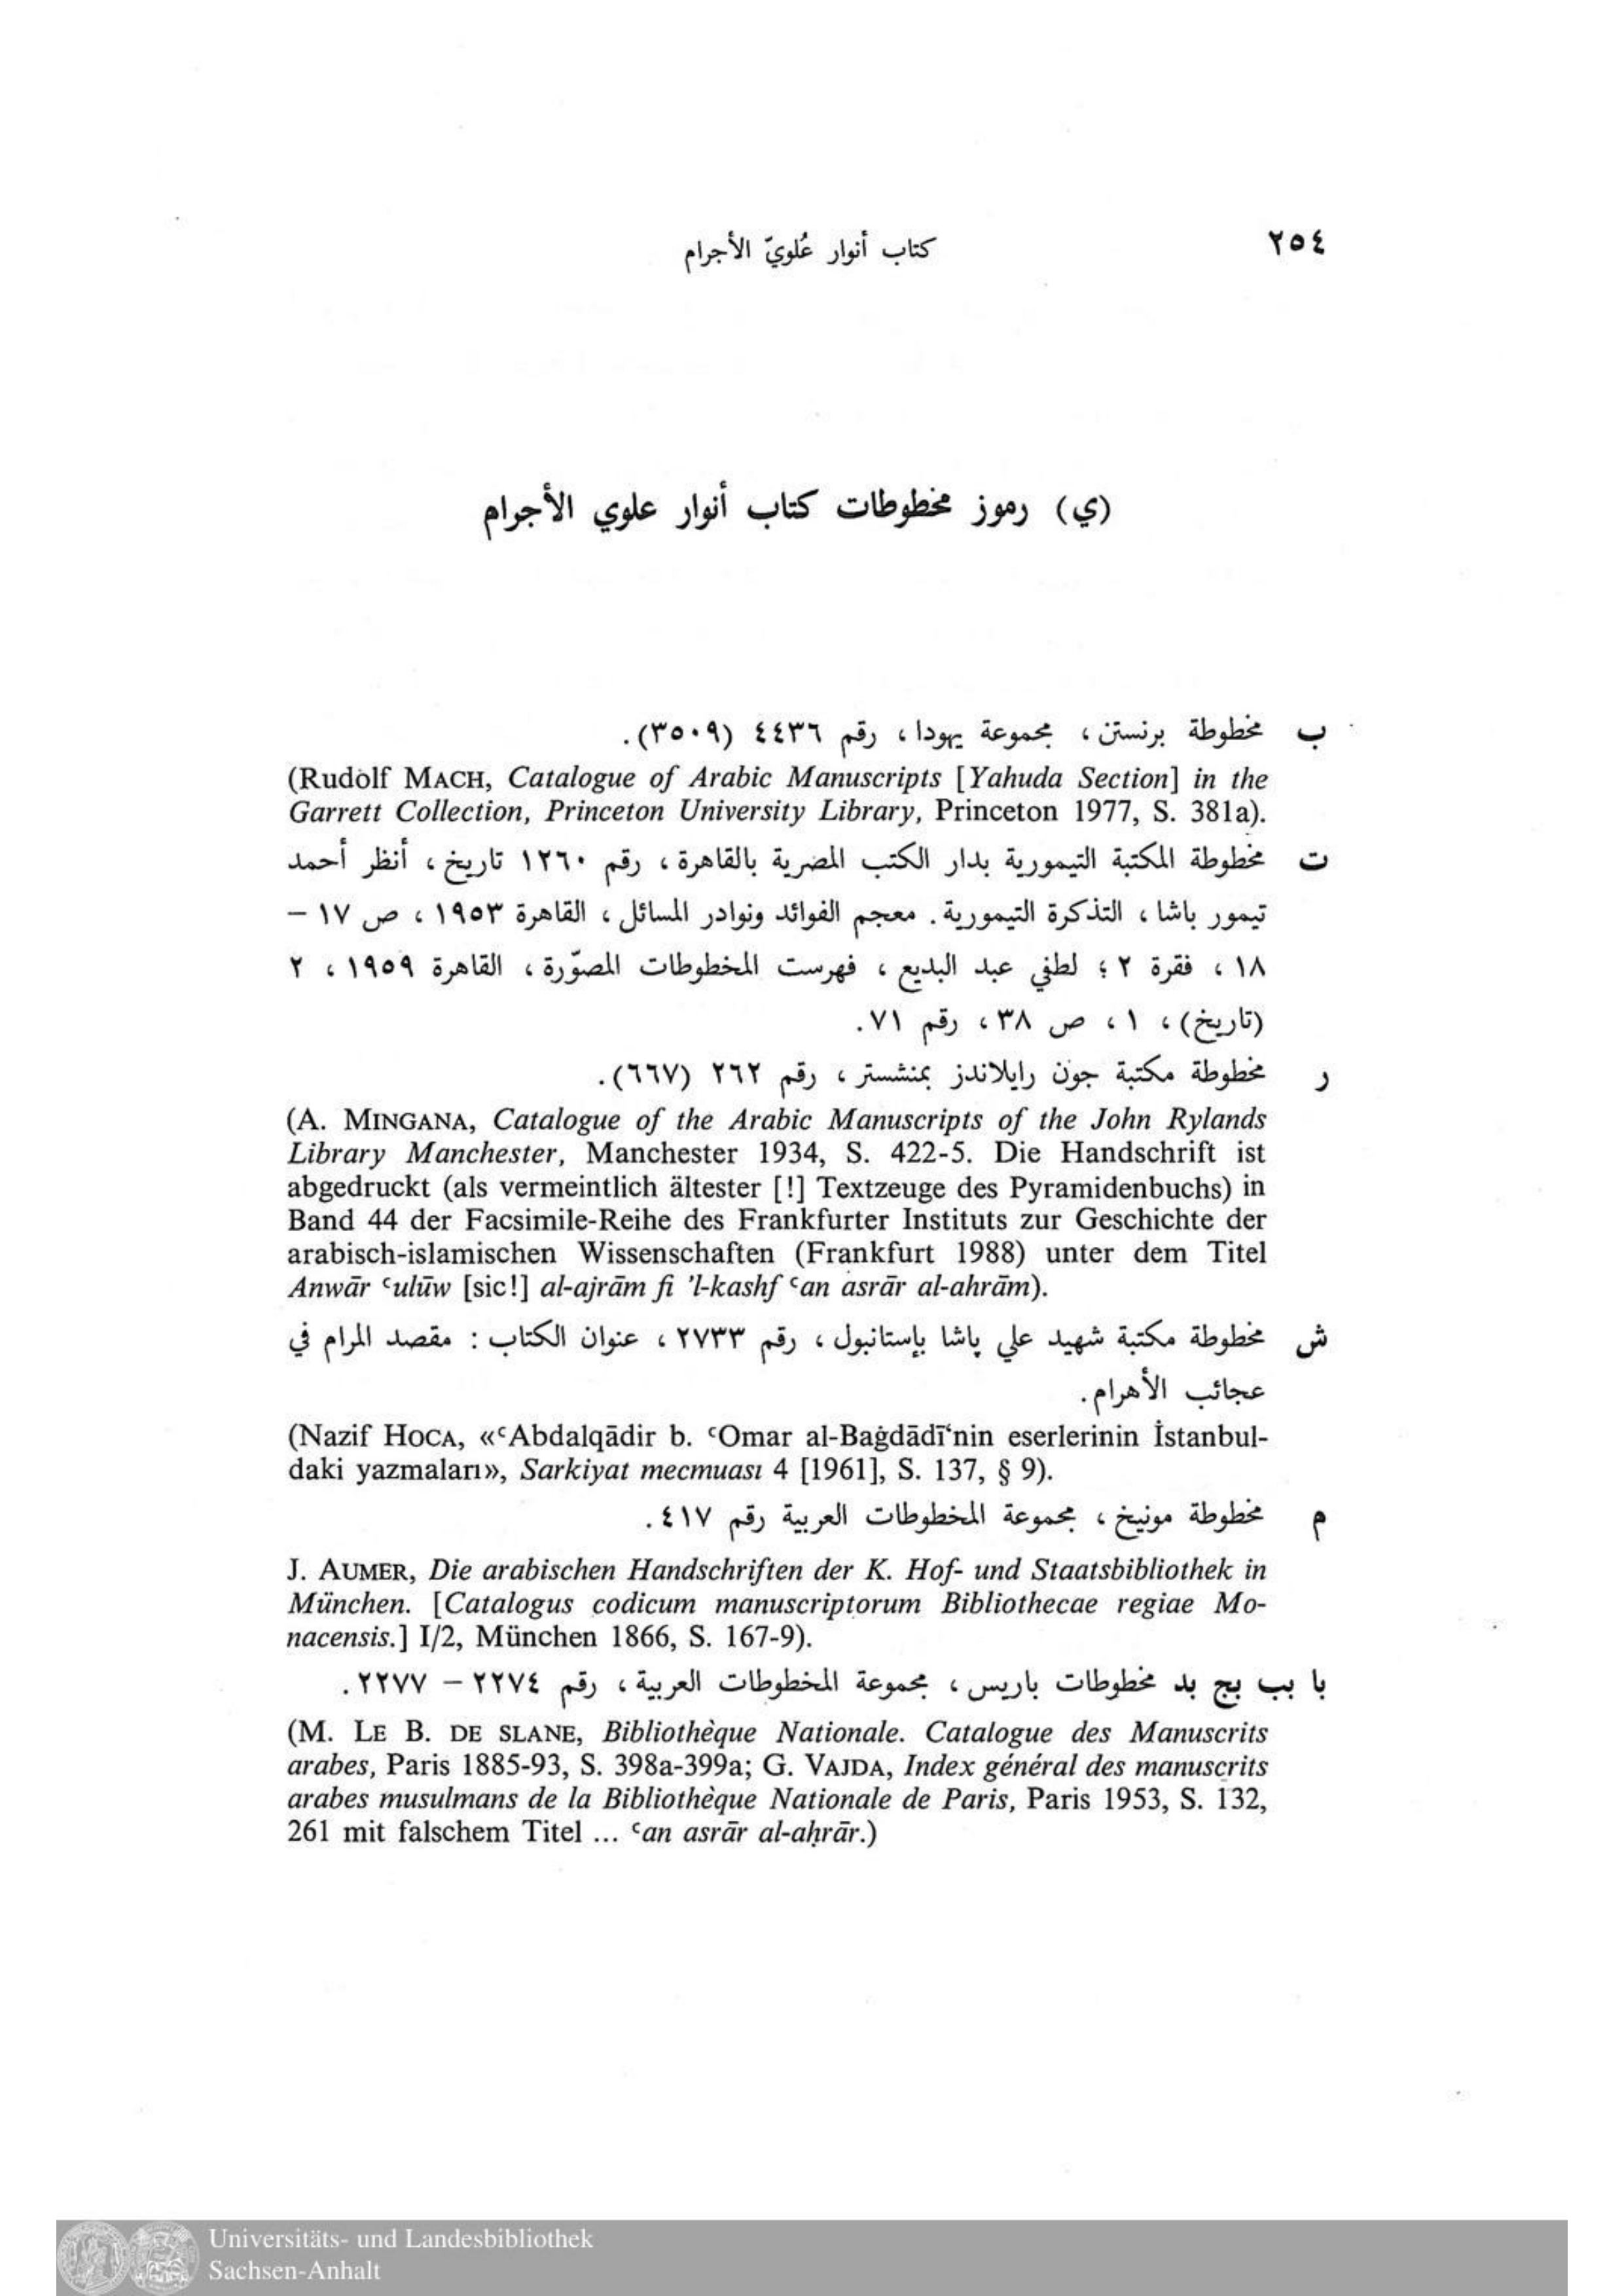 ٢٥٤
كتاب أنوار عُلويّ الأجرام
(ي) رموز مخطوطات كتاب أنوار علوي الأجرام
ب مخطوطة برنستن ، مجموعة يهودا ، رقم ٤٤٣٦ (٣٥٠٩).
(Rudolf MACH, Catalogue of Arabic Manuscripts [Yahuda Section] in the
Garrett Collection, Princeton University Library, Princeton 1977, S. 381a).
ت مخطوطة المكتبة التيمورية بدار الكتب المصرية بالقاهرة ، رقم ١٢٦٠ تاريخ ، أنظر أحمد
تيمور باشا ، التذكرة التيمورية . معجم الفوائد ونوادر المسائل ، القاهرة ١٩٥٣ ، ص ١٧ –
١٨ ، فقرة ٢ ؛ لطفي عبد البديع ، فهرست المخطوطات المصوّرة ، القاهرة ١٩٥٩ ، ٢
(تاريخ) ، ١ ، ص ٣٨ ، رقم ٧١.
ر مخطوطة مكتبة جون رايلاندز بمنشستر ، رقم ٢٦٢ (٦٦٧).
(A. MINGANA, Catalogue of the Arabic Manuscripts of the John Rylands
Library Manchester, Manchester 1934, S. 422-5. Die Handschrift ist
abgedruckt (als vermeintlich ältester [!] Textzeuge des Pyramidenbuchs) in
Band 44 der Facsimile-Reihe des Frankfurter Instituts zur Geschichte der
arabisch-islamischen Wissenschaften (Frankfurt 1988) unter dem Titel
Anwār ʿulūw [sic!] al-ajrām fi ’l-kashf ʿan asrār al-ahrām).
ش مخطوطة مكتبة شهيد علي پاشا بإستانبول ، رقم ٢٧٣٣ ، عنوان الكتاب : مقصد المرام في
عجائب الأهرام.
(Nazif HOCA, «ʿAbdalqādir b. ʿOmar al-Baġdādī‘nin eserlerinin İstanbul-
daki yazmaları», Sarkiyat mecmuası 4 [1961], S. 137, § 9).
م مخطوطة مونيخ ، مجموعة المخطوطات العربية رقم ٤١٧.
J. AUMER, Die arabischen Handschriften der K. Hof- und Staatsbibliothek in
München. [Catalogus codicum manuscriptorum Bibliothecae regiae Mo-
nacensis.] I/2, München 1866, S. 167-9).
با بب بج بد مخطوطات باريس ، مجموعة المخطوطات العربية ، رقم ٢٢٧٤ – ٢٢٧٧.
(M. LE B. DE SLANE, Bibliothèque Nationale. Catalogue des Manuscrits
arabes, Paris 1885-93, S. 398a-399a; G. VAJDA, Index général des manuscrits
arabes musulmans de la Bibliothèque Nationale de Paris, Paris 1953, S. 132,
261 mit falschem Titel ... ʿan asrār al-aḥrār.)
Universitäts- und Landesbibliothek
Sachsen-Anhalt